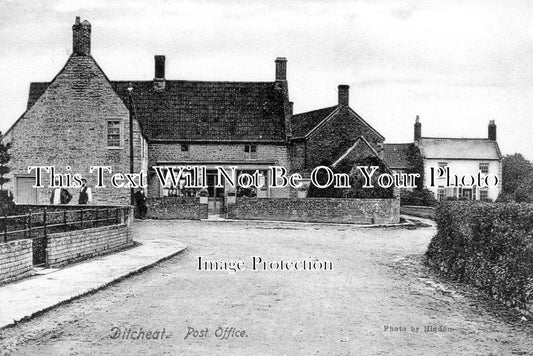 This Text Will Not Be On Your Photo
Image Protection
Ditcheat. Post Office.
Photo by Higdon